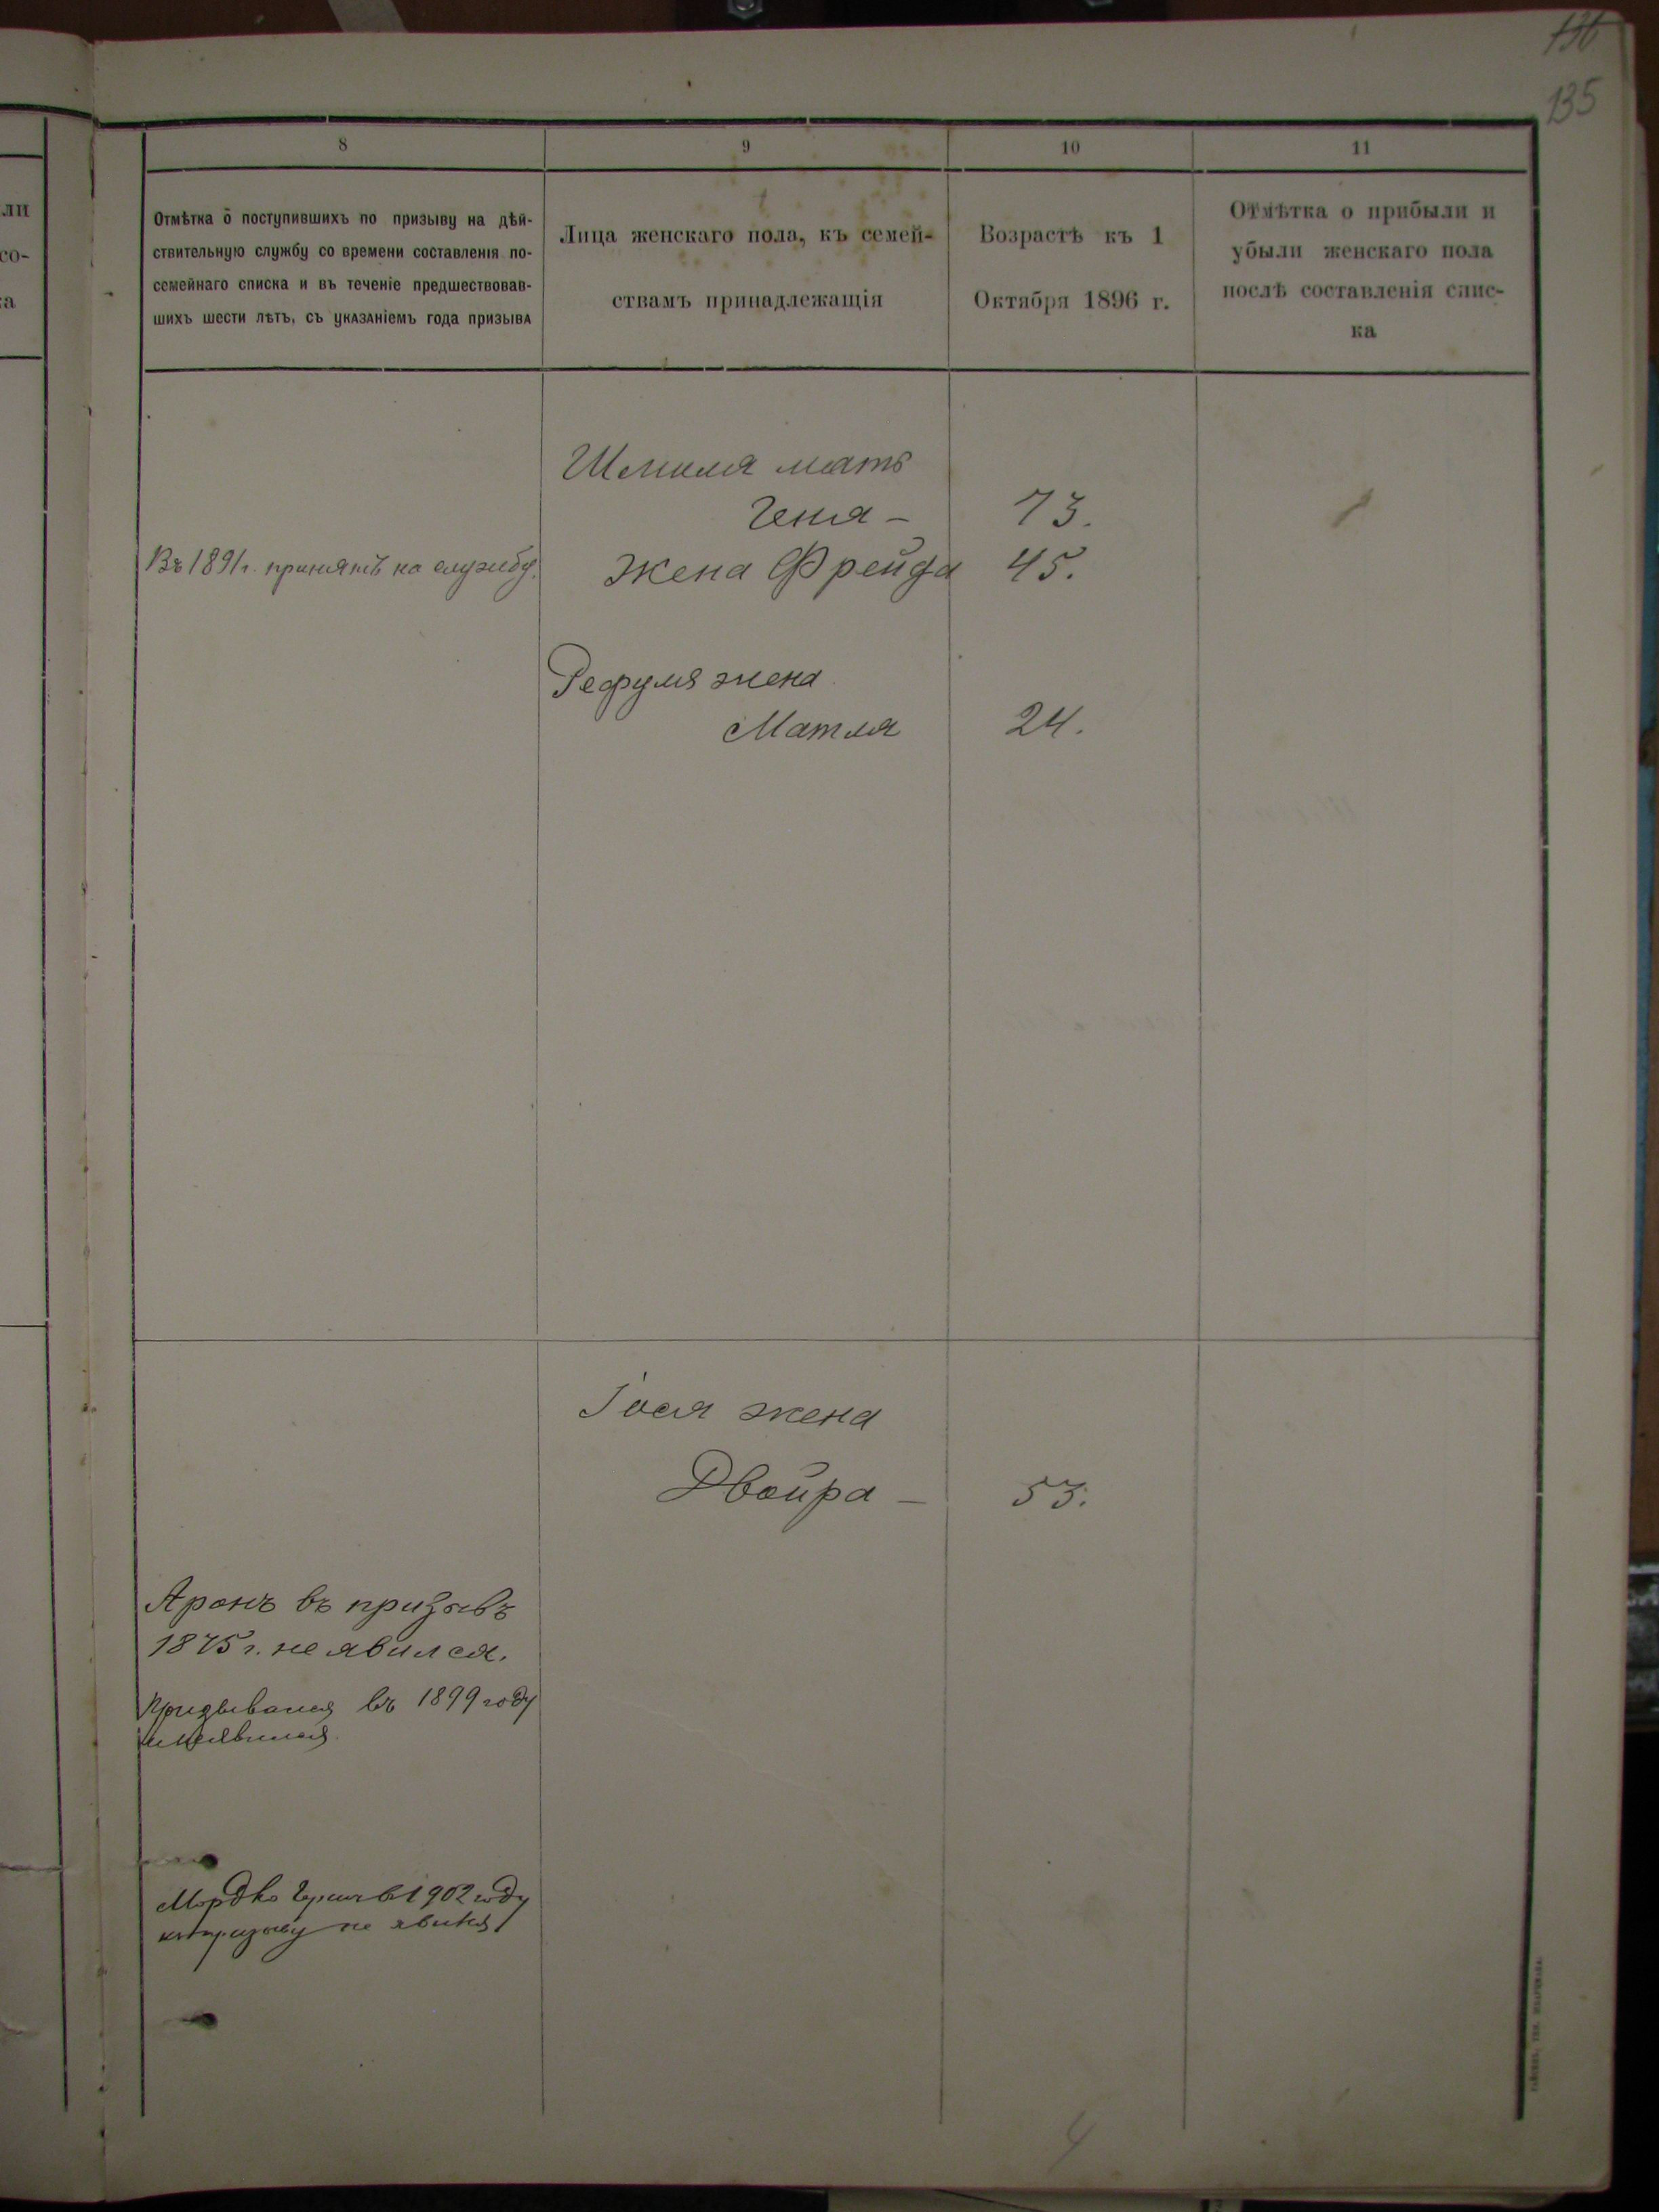 136
135
ли
со-
ка
8
9
10
11
Отмѣтка о поступившихъ по призыву на дѣй-
ствительную службу со времени составленія по-
семейнаго списка и въ теченіе предшествовав-
шихъ шести лѣтъ, съ указаніемъ года призыва
Лица женскаго пола, къ семей-
ствамъ принадлежащія
Возрастъ къ 1
Октября 1896 г.
Отмѣтка о прибыли и
убыли женскаго пола
послѣ составленія спис-
ка
Шмиля мать
Геня – 73.
Въ 1891 г. принятъ на службу.
Жена Фрейда 45.
Рефуля жена
Матля 24.
Іося жена
Двойра – 53.
Аронъ въ призывъ
1875 г. не явился.
Призывался въ 1899 году
и неявился.
Мордко Гершъ в 1902 году
къ призыву не явился
4